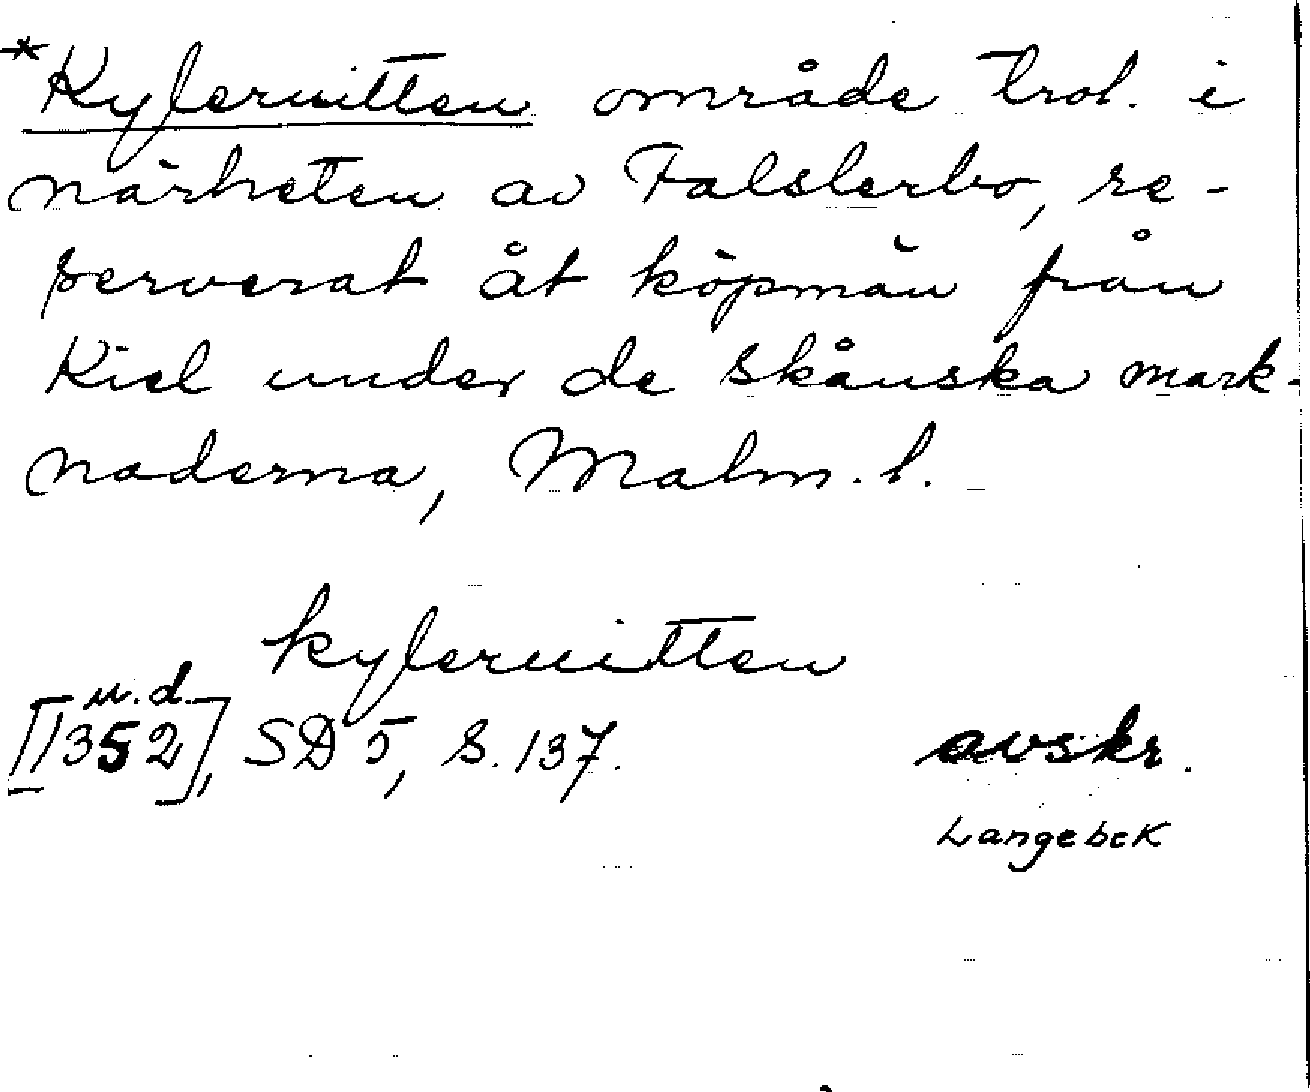 *Kyleruitten område trol. i
närheten av Falsterbo, re-
serverat åt köpmän från
Kiel under de skånska mark-
naderna, Malm. l.
kyleruitten
u.d.
[1352], SD 5, S. 137. avskr.
Langebek